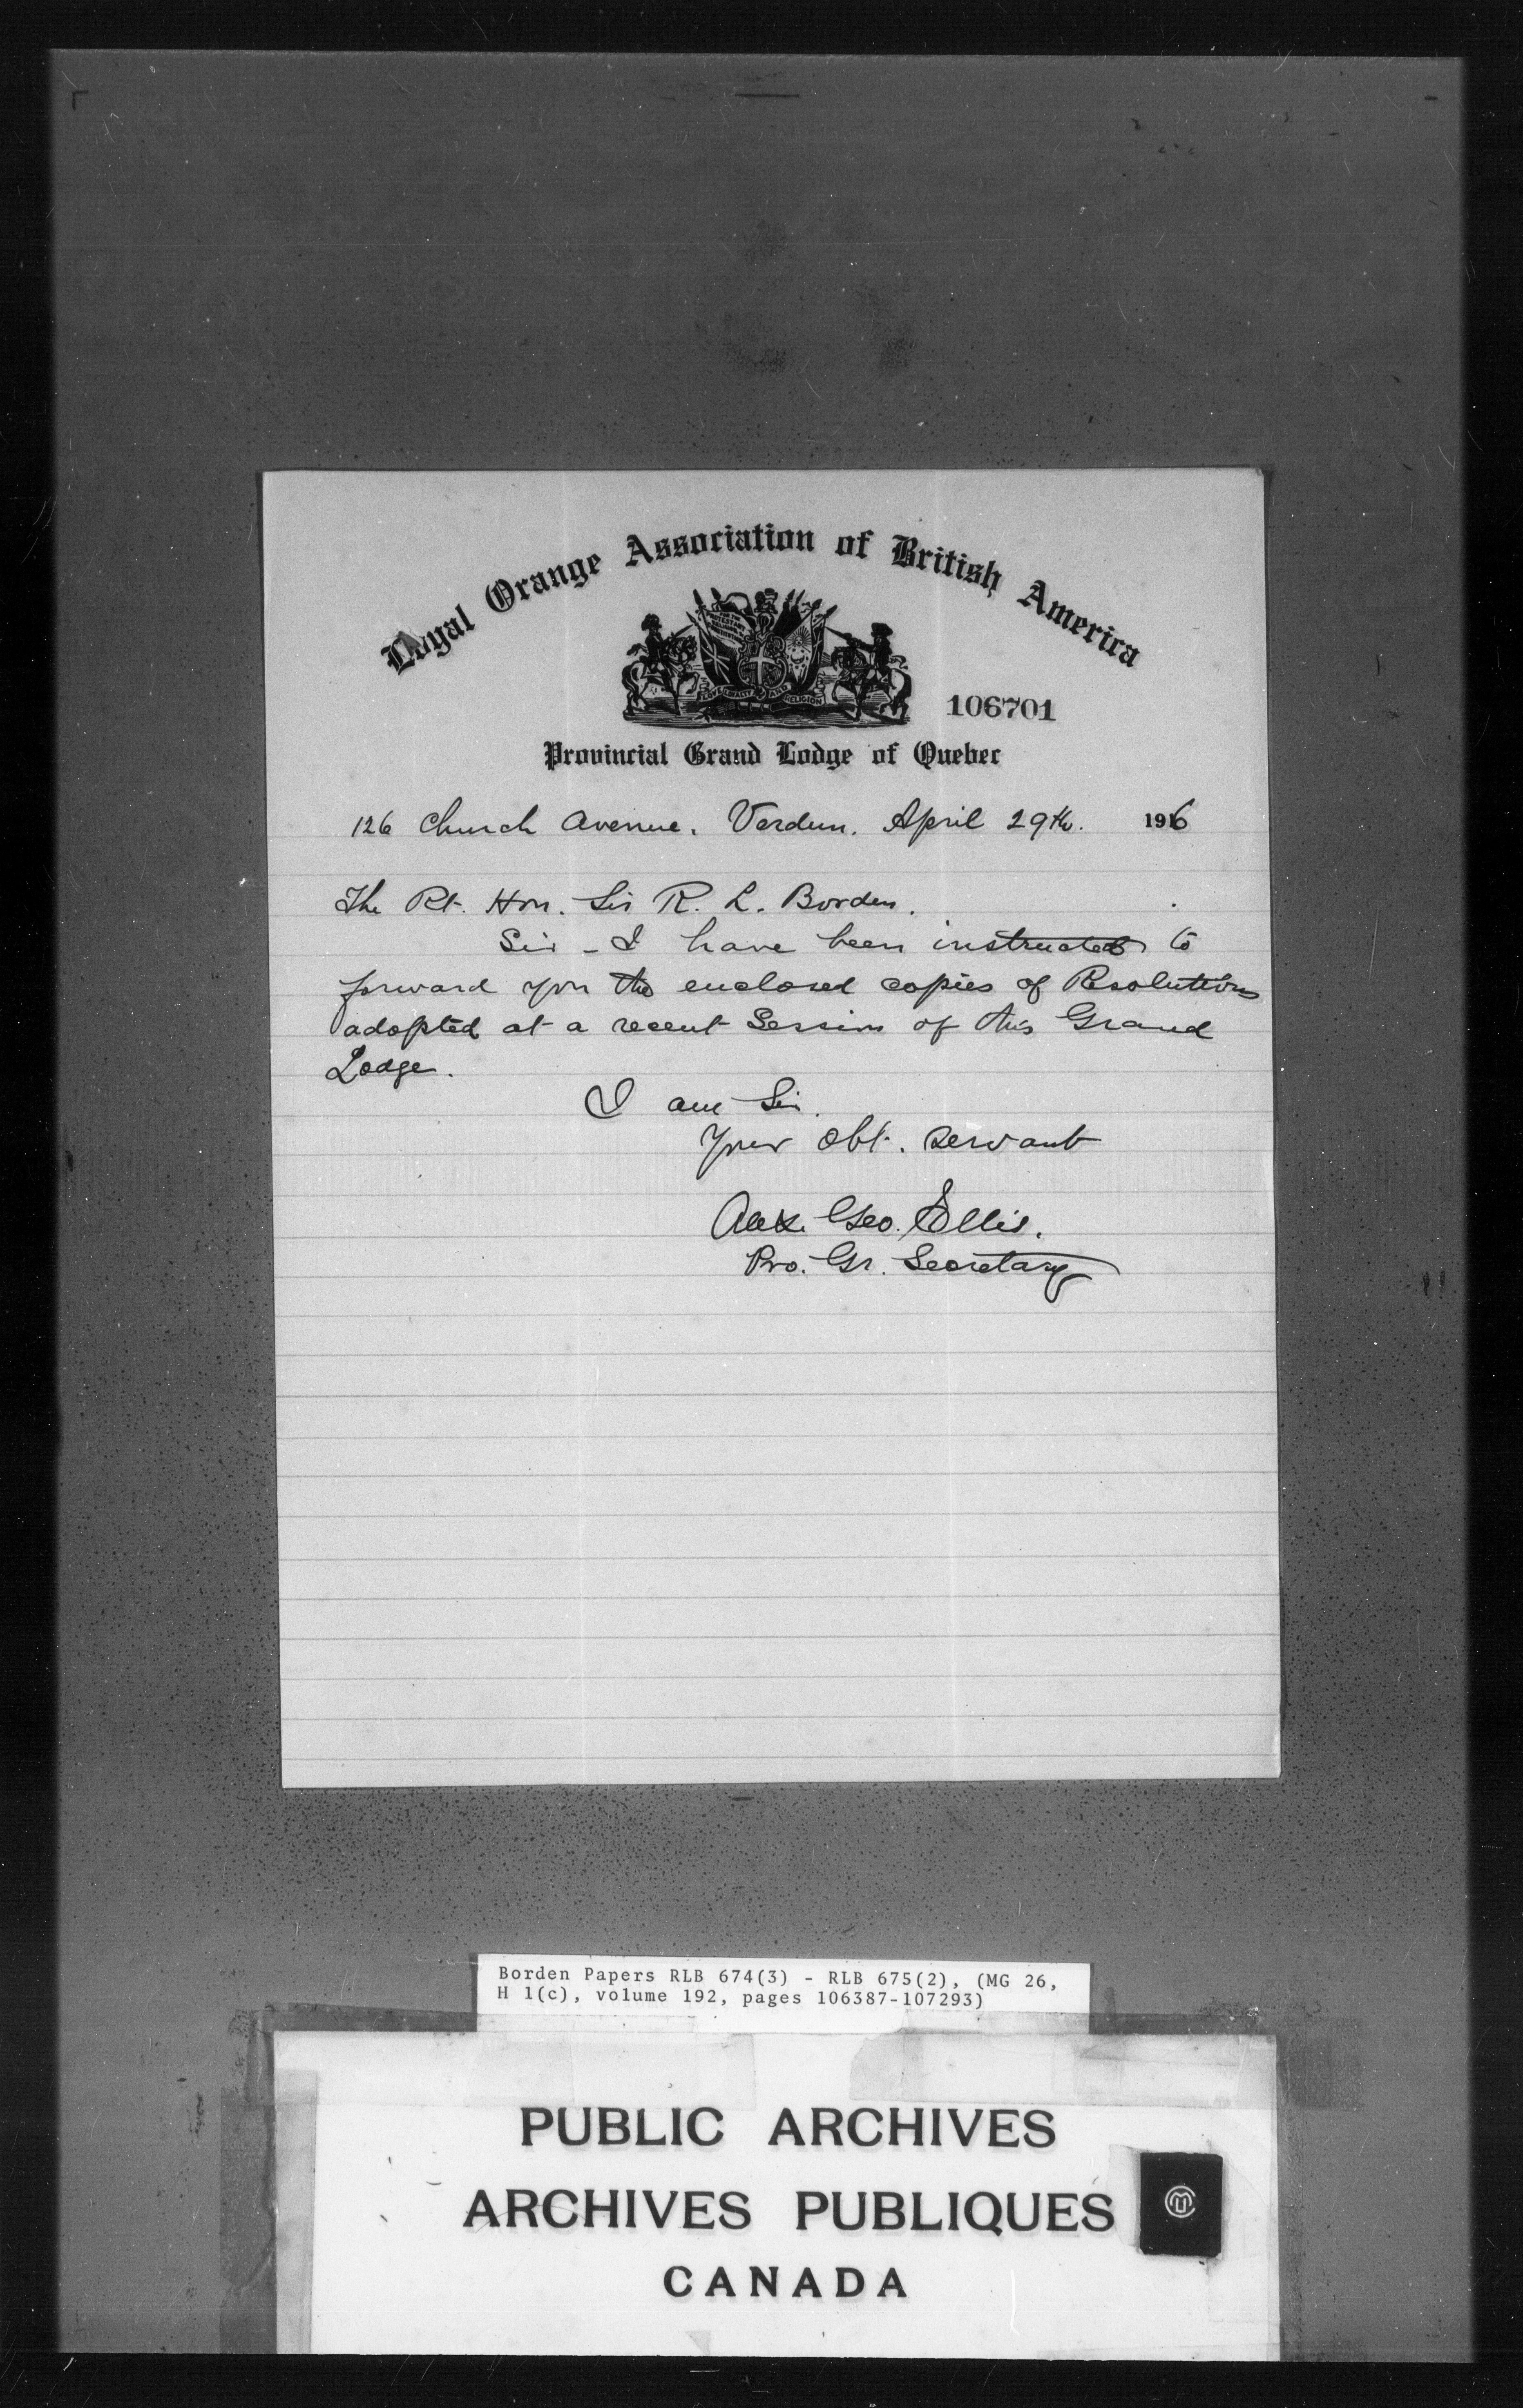 Loyal Orange Association of British America
FOR THE PROTESTANT RELIGION
LOVE LOYALTY AND RELIGION
106701
Provincial Grand Lodge of Quebec
126 Church Avenue. Verdun. April 29th. 1916
The Rt. Hon. Sir R. L. Borden.
Sir - I have been instructed to
forward you the enclosed copies of Resolutions
adopted at a recent Session of this Grand
Lodge.
I am Sir.
Your Obt. Servant
Alex. Geo. Ellis.
Pro. Gr. Secretary
Borden Papers RLB 674(3) - RLB 675(2), (MG 26,
H 1(c), volume 192, pages 106387-107293)
PUBLIC ARCHIVES
ARCHIVES PUBLIQUES
CANADA